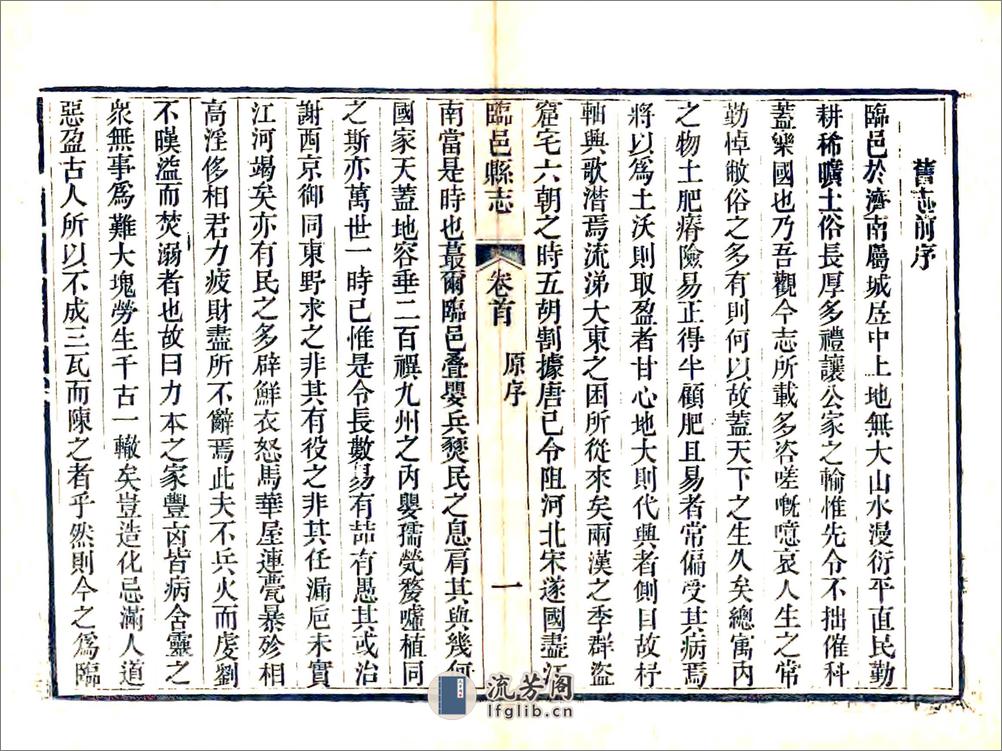 舊志前序
臨邑於濟南屬城居中上地無大山水漫衍平直民勤
耕稀曠土俗長厚多禮讓公家之輸惟先令不拙催科
蓋樂國也乃吾觀今志所載多咨嗟嘅噫哀人生之常
勤悼敝俗之多有則何以故蓋天下之生久矣總寓內
之物土肥瘠險易正得半顧肥且易者常偏受其病焉
將以爲土沃則取盈者甘心地大則代興者側目故杼
軸興歌潛焉流涕大東之困所從來矣兩漢之季群盜
窟宅六朝之時五胡割據唐已令阻河北宋遂國盡江
臨邑縣志
卷首
原序
一
南當是時也蕞爾臨邑疊嬰兵燹民之息肩其與幾何
國家天蓋地容垂二百禩九州之內嬰孺煢嫠噓植同
之斯亦萬世一時已惟是令長數易有喆有愚其或治
謝西京御同東野求之非其有役之非其任漏巵未實
江河竭矣亦有民之多辟鮮衣怒馬華屋連甍暴殄相
高淫侈相君力疲財盡所不辭焉此夫不兵火而虔劉
不暵溢而焚溺者也故曰力本之家豐凶皆病舍靈之
衆無事爲難大塊勞生千古一轍矣豈造化忌滿人道
惡盈古人所以不成三瓦而陳之者乎然則今之爲臨
流芳閣
lfglib.cn